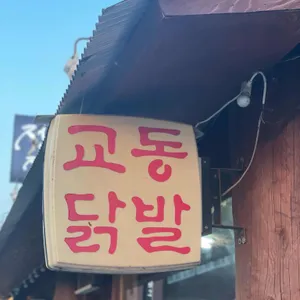 교동
닭발